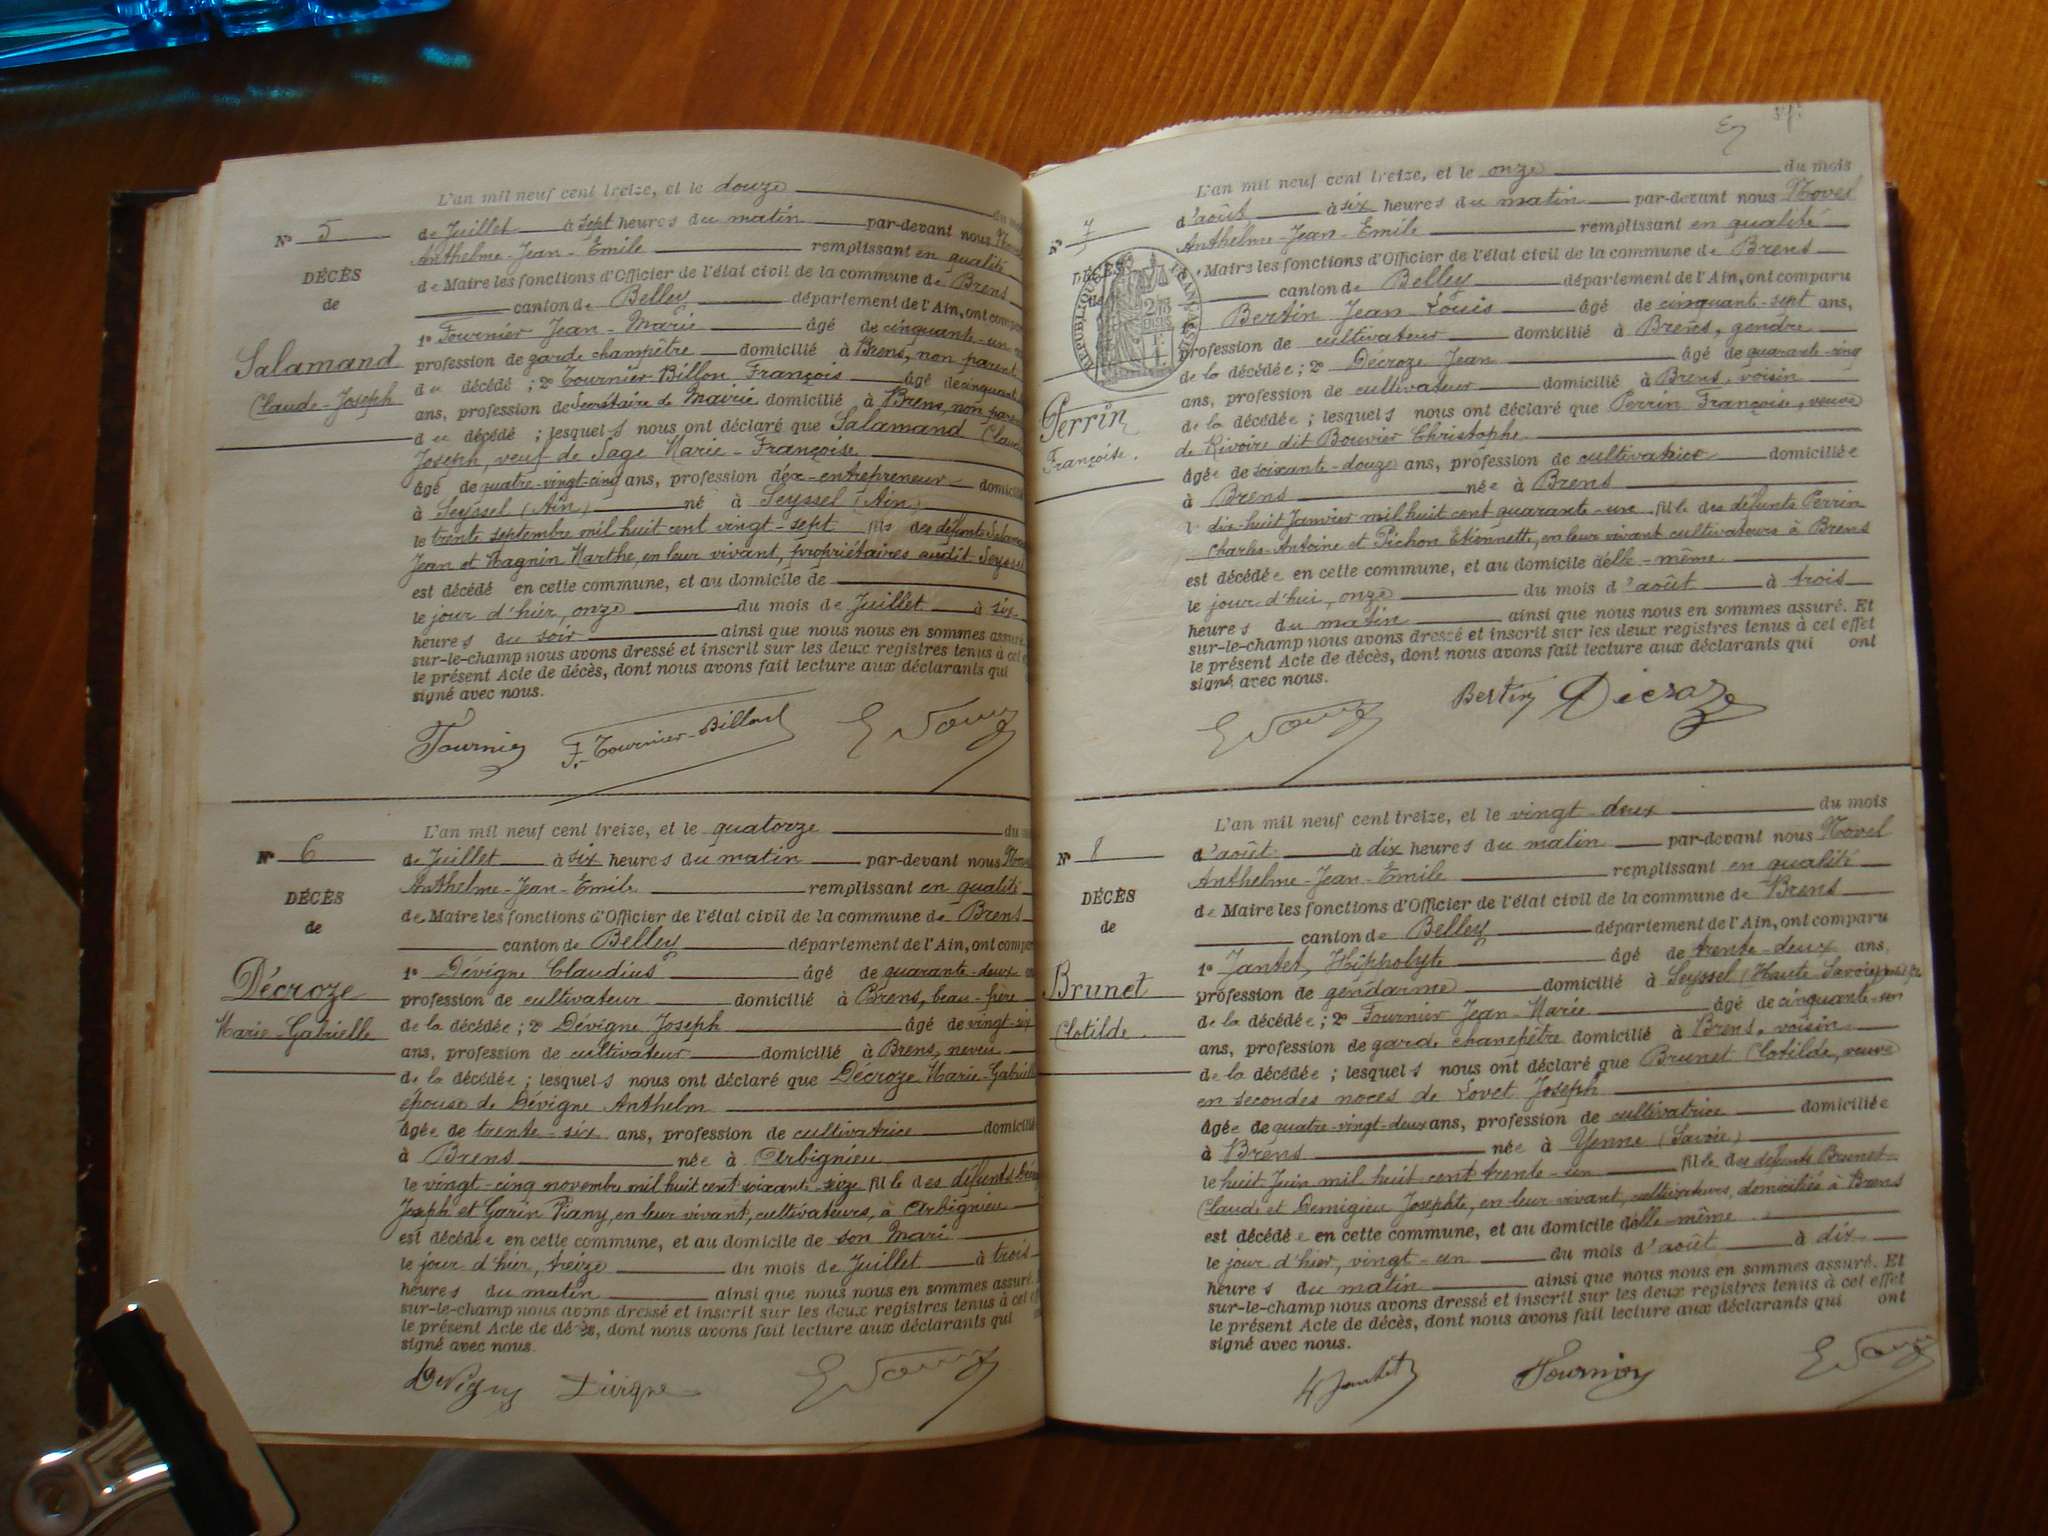 L'an mil neuf cent treize, et le douze du
N° 5
de Juillet à sept heures du matin par-devant nous
Anthelme-Jean-Emile remplissant en qualité
DÉCÈS
de Maire les fonctions d'Officier de l'état civil de la commune de Brens
de
canton de Belley département de l'Ain, ont
1° Fournier Jean-Marie âgé de cinquante-un
Salamand
profession de garde champêtre domicilié à Brens, non parent
Claude-Joseph
du décédé ; 2° Tournier-Billon François âgé de
ans, profession de Secrétaire de Mairie domicilié à Brens, non
du décédé ; lesquels nous ont déclaré que Salamand
Joseph, veuf de Sage Marie-Françoise
âgé de quatre-vingt-cinq ans, profession d'ex-entrepreneur
à Seyssel (Ain) né à Seyssel (Ain)
le trente septembre mil huit cent vingt-sept fils des défunts
Jean et Magnin Marthe, en leur vivant, propriétaires audit
est décédé en cette commune, et au domicile de
le jour d'hier, onze du mois de Juillet à six
heures du soir ainsi que nous nous en sommes assuré.
sur-le-champ nous avons dressé et inscrit sur les deux registres tenus à cet
le présent Acte de décès, dont nous avons fait lecture aux déclarants qui
signé avec nous.
Fournier F. Tournier-Billon
L'an mil neuf cent treize, et le quatorze du
N° 6
de Juillet à six heures du matin par-devant nous
Anthelme-Jean-Emile remplissant en qualité
DÉCÈS
de Maire les fonctions d'Officier de l'état civil de la commune de Brens
de
canton de Belley département de l'Ain, ont
1° Dévigne Claudius âgé de quarante-deux
Décroze
profession de cultivateur domicilié à Brens, beau-frère
Marie-Gabrielle
de la décédée ; 2° Dévigne Joseph âgé de vingt-six
ans, profession de cultivateur domicilié à Brens, neveu
de la décédée ; lesquels nous ont déclaré que Décroze Marie-Gabrielle
épouse de Dévigne Anthelm
âgée de trente-six ans, profession de cultivatrice
à Brens née à Arbignieu
le vingt-cinq novembre mil huit cent soixante-seize fille des défunts
Joseph et Garin Fiany, en leur vivant, cultivateurs, à Arbignieu
est décédée en cette commune, et au domicile de son Mari
le jour d'hier, treize du mois de Juillet à trois
heures du matin ainsi que nous nous en sommes assuré.
sur-le-champ nous avons dressé et inscrit sur les deux registres tenus à cet
le présent Acte de décès, dont nous avons fait lecture aux déclarants qui
signé avec nous.
Devigne Divigne
L'an mil neuf cent treize, et le onze du mois
N° 7
d'août à six heures du matin par-devant nous Novel
Anthelme-Jean-Emile remplissant en qualité
DÉCÈS
Maire les fonctions d'Officier de l'état civil de la commune de Brens
canton de Belley département de l'Ain, ont comparu
Bertin Jean Louis âgé de cinquante-sept ans,
profession de cultivateur domicilié à Brens, gendre
de la décédée ; 2° Décroze Jean âgé de quarante-cinq
ans, profession de cultivateur domicilié à Brens, voisin
Perrin
Françoise.
de la décédée ; lesquels nous ont déclaré que Perrin Françoise, veuve
de Rivoire dit Bouvier Christophe
âgée de soixante-douze ans, profession de cultivatrice domiciliée
à Brens née à Brens
le dix-huit Janvier mil huit cent quarante-un fille des défunts Perrin
Charles-Antoine et Pichon Etiennette, en leur vivant cultivateurs à Brens
est décédée en cette commune, et au domicile d'elle-même
le jour d'hui, onze du mois d'août à trois
heures du matin ainsi que nous nous en sommes assuré. Et
sur-le-champ nous avons dressé et inscrit sur les deux registres tenus à cet effet
le présent Acte de décès, dont nous avons fait lecture aux déclarants qui ont
signé avec nous.
Bertin Décroze
L'an mil neuf cent treize, et le vingt-deux du mois
N° 8
d'août à dix heures du matin par-devant nous Novel
Anthelme-Jean-Emile remplissant en qualité
DÉCÈS
de Maire les fonctions d'Officier de l'état civil de la commune de Brens
de
canton de Belley département de l'Ain, ont comparu
1° Jantet, Hippolyte âgé de trente-deux ans,
Brunet
profession de gendarme domicilié à Seyssel (Haute Savoie)
Clotilde
de la décédée ; 2° Fournier Jean-Marie âgé de cinquante-un
ans, profession de garde champêtre domicilié à Brens, voisin
de la décédée ; lesquels nous ont déclaré que Brunet Clotilde, veuve
en secondes noces de Lovet Joseph
âgée de quatre-vingt-deux ans, profession de cultivatrice domiciliée
à Brens née à Yenne (Savoie)
le huit Juin mil huit cent trente-un fille des défunts Brunet
Claude et Demigieu Josephte, en leur vivant, cultivateurs, domiciliés à Brens
est décédée en cette commune, et au domicile d'elle-même
le jour d'hier, vingt-un du mois d'août à dix
heures du matin ainsi que nous nous en sommes assuré. Et
sur-le-champ nous avons dressé et inscrit sur les deux registres tenus à cet effet
le présent Acte de décès, dont nous avons fait lecture aux déclarants qui ont
signé avec nous.
H Jantet Fournier